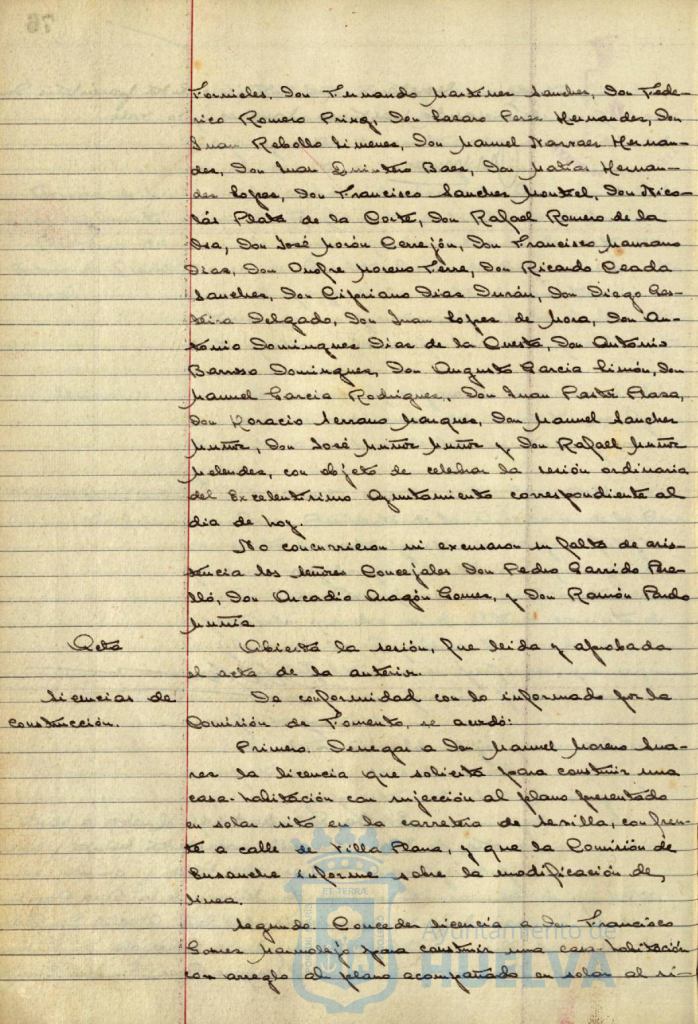 76
Fornieles, Don Fernando Martinez Sanchez, Don Fede-
rico Romero Pring, Don Lazaro Perez Hernandez, Don
Juan Rebollo Jimenez, Don Manuel Narvaez Hernan-
dez, Don Juan Quintero Baez, Don Matías Hernan-
dez Lopez, Don Francisco Sanchez Montiel, Don Nico-
lás Plata de la Corte, Don Rafael Romero de la
Osa, Don José Morón Cerrejón, Don Francisco Manzano
Diaz, Don Onofre Moreno Ferre, Don Ricardo Ceada
Sanchez, Don Cipriano Diaz Durán, Don Diego
Delgado, Don Juan Lopez de Mora, Don An-
tonio Dominguez Diaz de la Cuesta, Don Antonio
Barroso Dominguez, Don Augusto Garcia Simón, Don
Manuel Garcia Rodriguez, Don Juan Plaza,
Don Horacio Serrano Marquez, Don Manuel Sanchez
Muñoz, Don José Muñoz Muñoz y Don Rafael Muñoz
Melendez, con objeto de celebrar la sesión ordinaria
del Excelentísimo Ayuntamiento correspondiente al
dia de hoy.
No concurrieron ni excusaron su falta de asis-
tencia los señores Concejales Don Pedro Garrido Pere-
lló, Don Arcadio Aragón Gomez, y Don Ramón Pardo
Acta
Abierta la sesión, fue leida y aprobada
el acta de la anterior.
licencias de
construcción.
De conformidad con lo informado por la
Comisión de Fomento, se acordó:
Primero. Denegar a Don Manuel Moreno Sua-
rez la licencia que solicita para construir una
casa-habitación con sujección al plano presentado
en solar sito en la carretera de Sevilla, con fren-
te a calle de Villa Plana, y que la Comisión de
Ensanche informe sobre la modificación de
linea.
Segundo. Conceder licencia a D. Francisco
Gomez Marmolejo para construir una casa-habitación
con arreglo al plano acompañado en solar al si-
ET TERRÆ
Ayuntamiento de
HUELVA